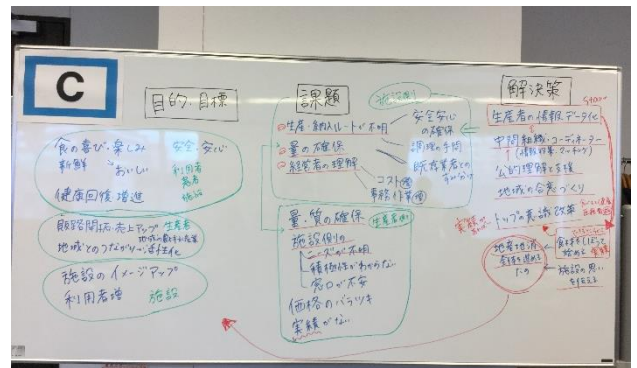 C
目的・目標
食の喜び・楽しみ
安全・安心
新鮮
おいしい
利用者
患者
施設
健康回復・増進
販路開拓・売上アップ 生産者
地域とのつながり・活性化
施設のイメージアップ
利用者増 施設
課題
施設側
生産・納入ルートが不明
量の確保
経営者の理解
安全安心
の確保
調理の手間
既存業者との
コスト
事務作業
量・質の確保
生産者側
施設側の
ニーズが不明
積極性がわからない
窓口が不安
価格のバラツキ
実績がない
解決策
生産者の情報データ化
中間組織・コーディネーター
公的理解と支援
地域の合意づくり
トップの意識改革
地産地消
食材をしぼって
始める
施設の思い
を伝える